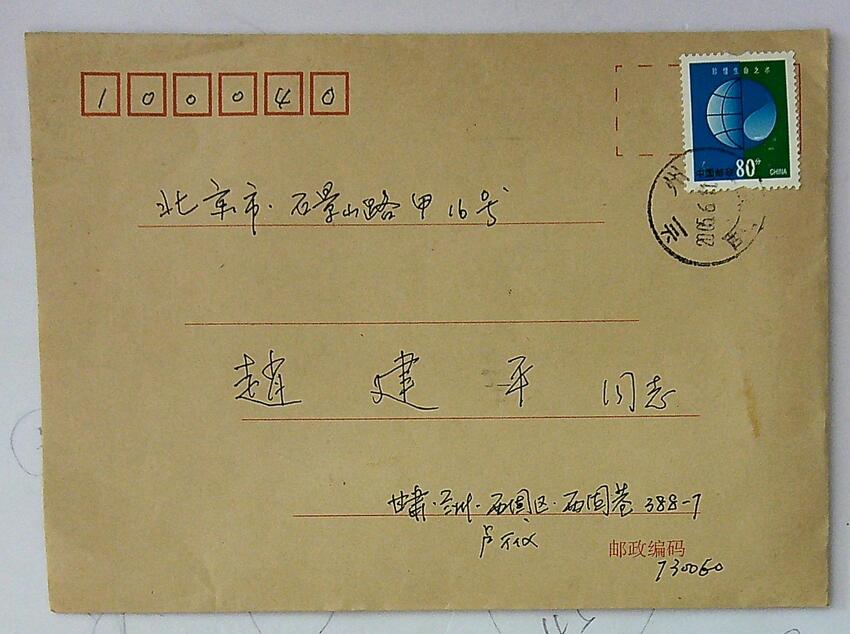 100040
珍惜生命之水
80分
CHINA
兰州
2005.6
北京市·石景山路甲16号
赵建平 同志
甘肃·兰州·西固区·西固巷388-7
邮政编码
730060